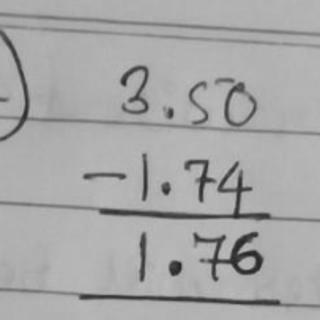 3.50
-1.74
1.76